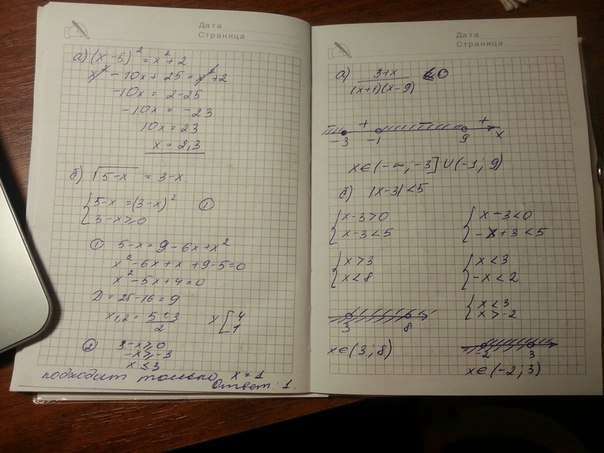 Дата
Страница
а) (x-5)² = x²+2
x² - 10x + 25 = x² + 2
-10x = 2-25
-10x = -23
10x = 23
x = 2,3
б) √5-x = 3-x
{5-x = (3-x)² ①
{3-x ≥ 0
① 5-x = 9-6x+x²
x²-6x+x+9-5=0
x²-5x+4=0
D = 25-16 = 9
x₁,₂ = 5±3/2 x[4
1
② 3-x≥0
-x≥-3
x≤3
подходит только x=1
Ответ: 1
Дата
Страница
а) 3+x/(x+1)(x-9) ≤0
+ +
-3 -1 9 x
x∈(-∞;-3]∪(-1;9)
б) |x-3|<5
{x-3>0 {x-3<0
{x-3<5 {-x+3<5
{x>3 {x<3
{x<8 {-x<2
{x<3
{x>-2
3 8
-2 3
x∈(3;8)
x∈(-2;3)